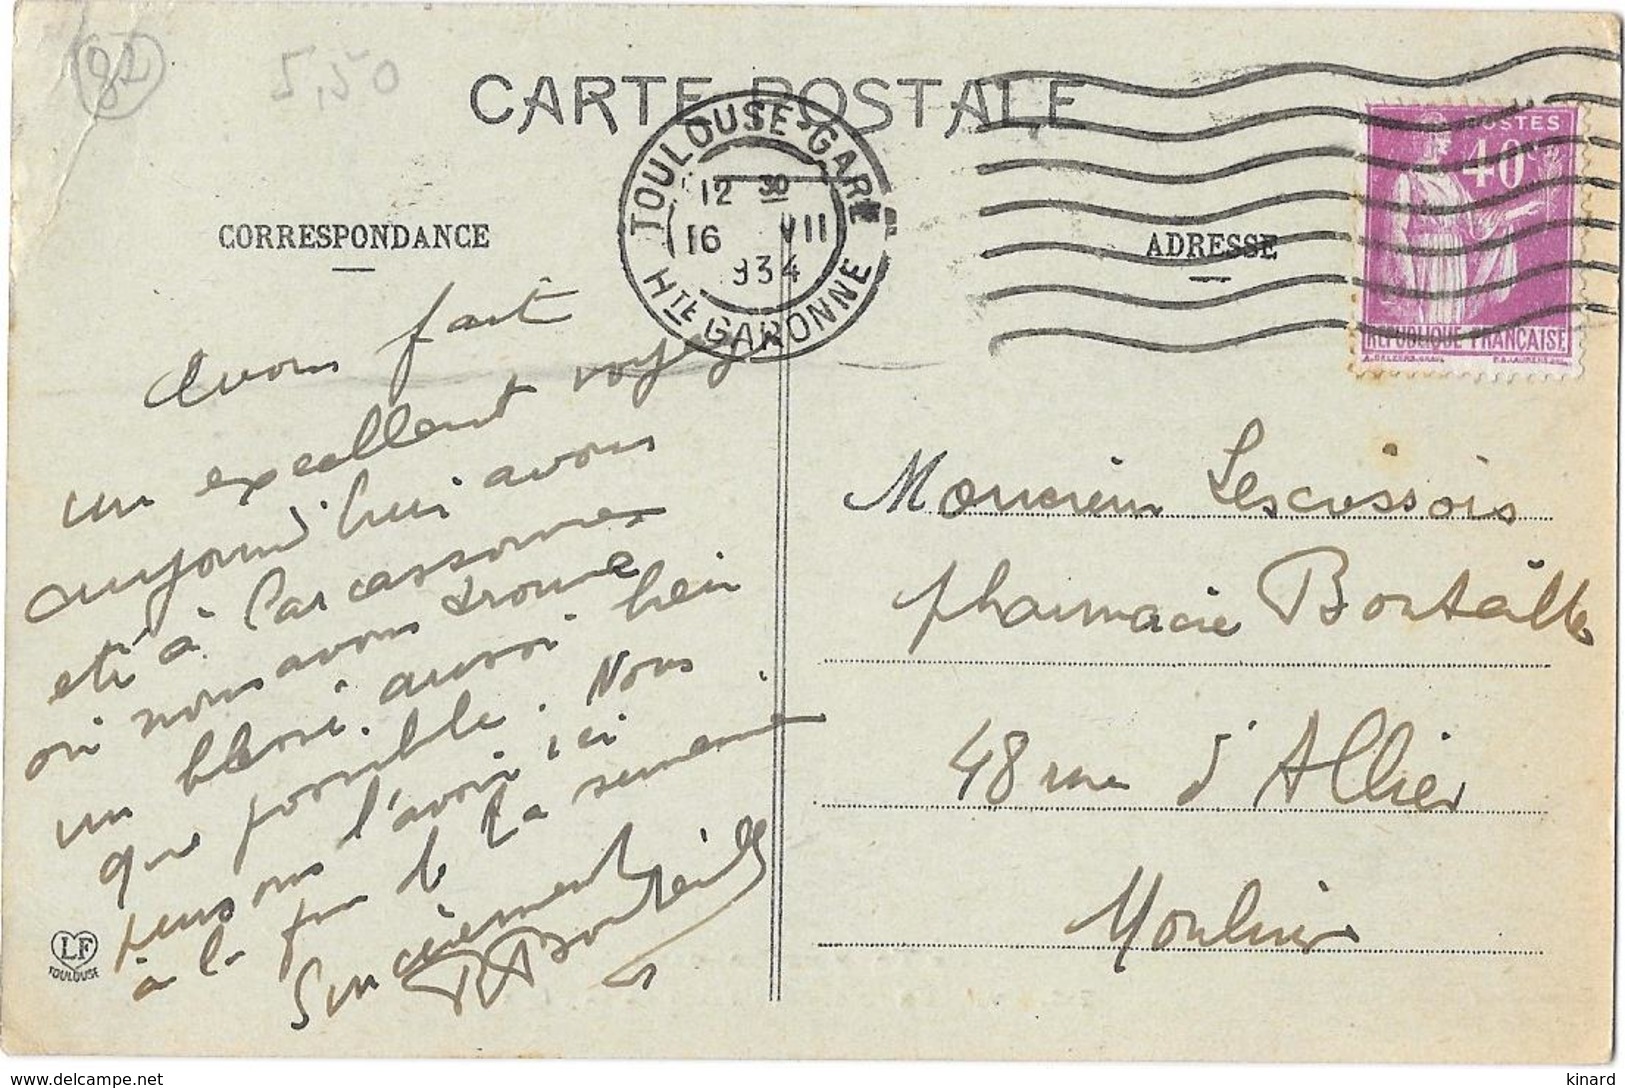 82
5,50
CARTE POSTALE
TOULOUSE-GARE
12 30
16 VII
934
HTE GARONNE
POSTES
40c
REPUBLIQUE FRANÇAISE
CORRESPONDANCE
ADRESSE
Avons fait
un excellent voyage
aujourd'hui avons
eté à Carcassonne
où nous avons trouvé
un blessé aussi bien
que possible. Nous
pensons l'avoir ici
à la fin de la semaine
Sincèrement
LF
TOULOUSE
Monsieur Lescussois
pharmacie
48 rue d'Allier
Moulins
www.delcampe.net
kinard